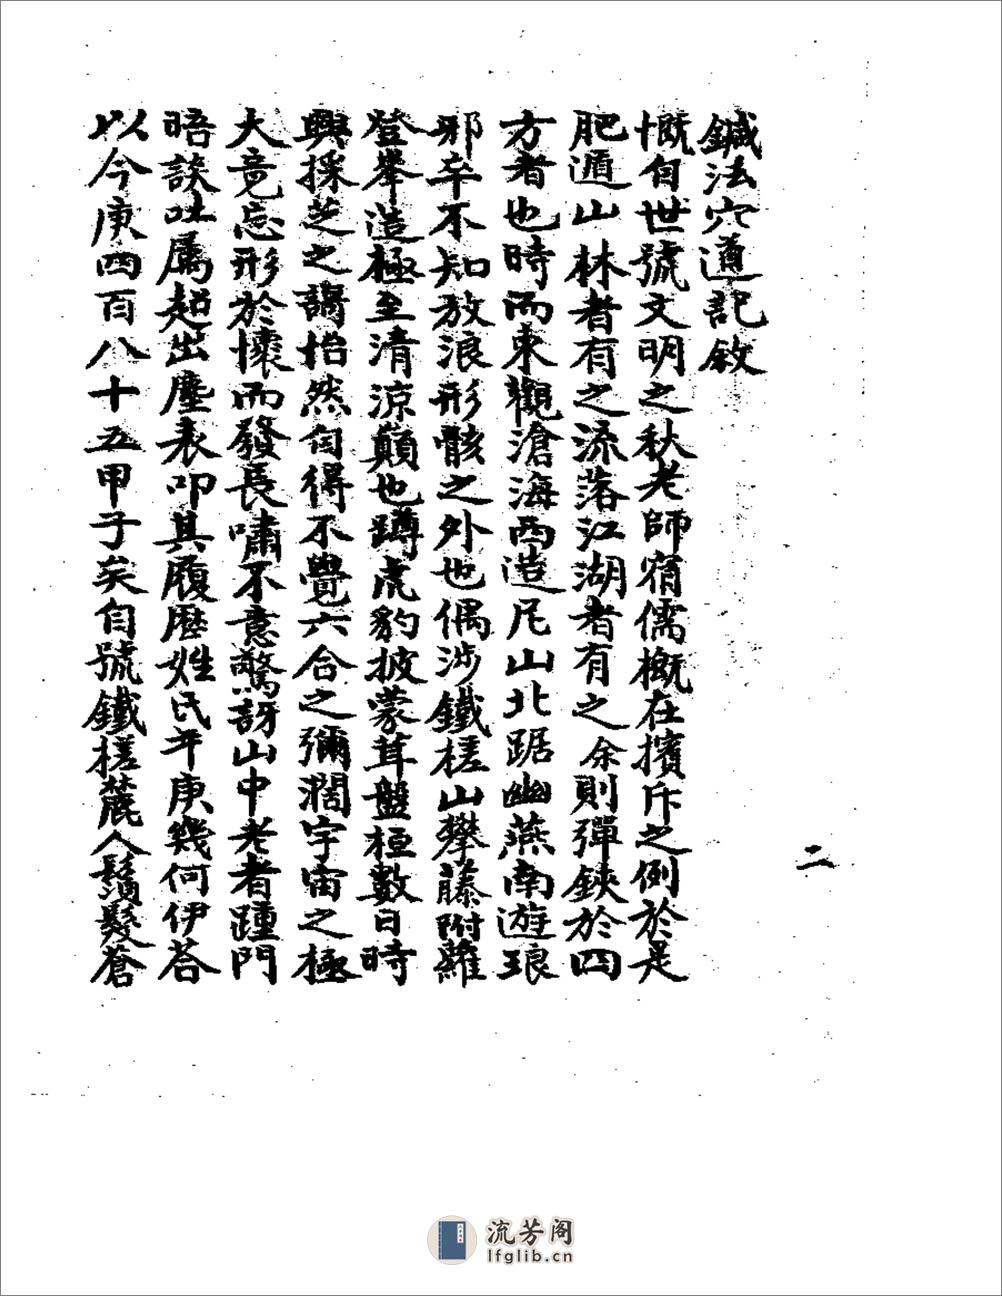 鍼法穴道記敘
慨自世號文明之秋老師宿儒概在擯斥之例於是
肥遁山林者有之流落江湖者有之余則彈鋏於四
方者也時而東觀滄海西造尼山北踞幽燕南遊琅
邪卒不知放浪形骸之外也偶涉鐵槎山攀藤附蘿
登峯造極至清涼巔也蹲虎豹披蒙茸盤桓數日時
興採芝之謌怡然自得不覺六合之彌濶宇宙之極
大竟忘形於懷而發長嘯不意驚訝山中老者踵門
晤談吐屬超出塵表叩其履歷姓氏年庚幾何伊荅
以今庚四百八十五甲子矣自號鐵槎麓人鬚髮蒼
二
流芳阁
lfglib.cn